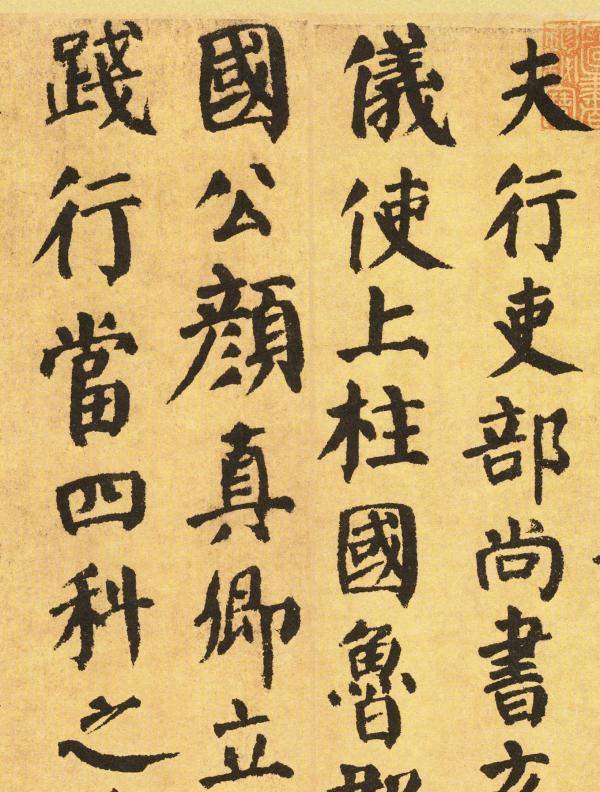 夫行吏部尚書
儀使上柱國魯
國公顔真卿立
踐行當四科之